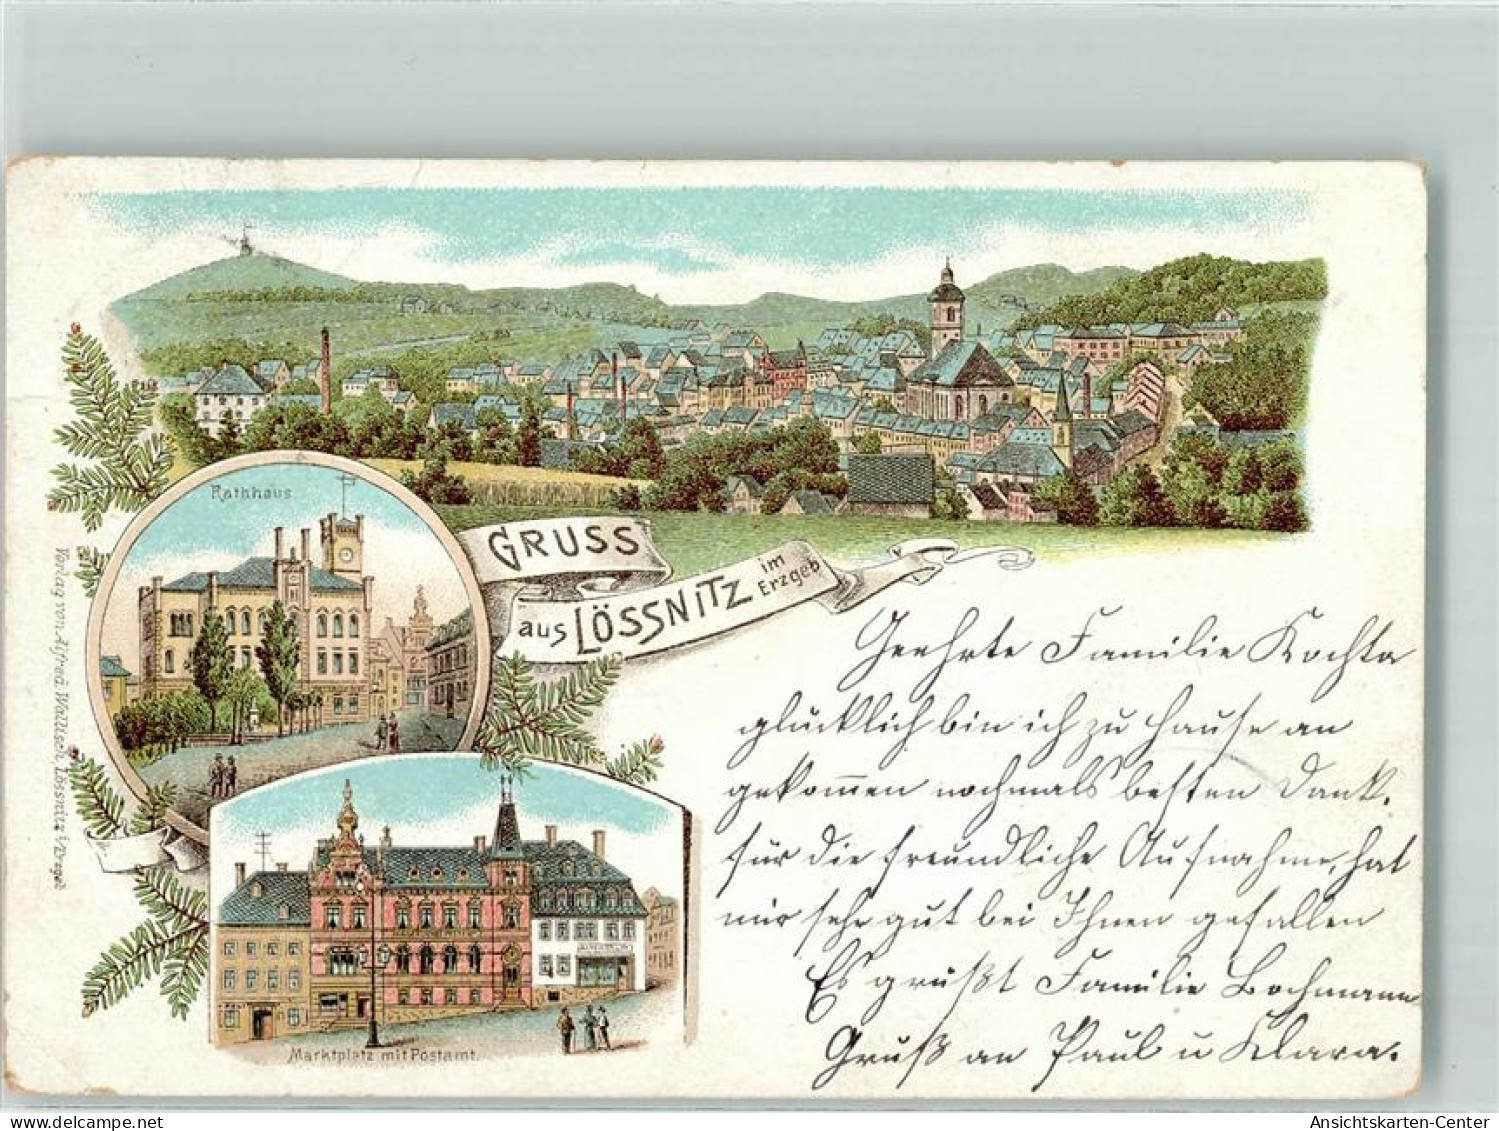 Rathhaus
GRUSS
aus LÖSSNITZ im Erzgeb
Verlag von Alfred Wallisch, Lössnitz i/Erzgeb
Marktplatz mit Postamt.
Geehrte Familie Kochta
glücklich bin ich zu Hause an
gekommen nochmals besten Dank.
für die freundliche Aufnahme, hat
mir sehr gut bei Ihnen gefallen
Es grüßt Familie Bochmann
Gruß an Paul u Klara.
delcampe.net
Ansichtskarten-Center